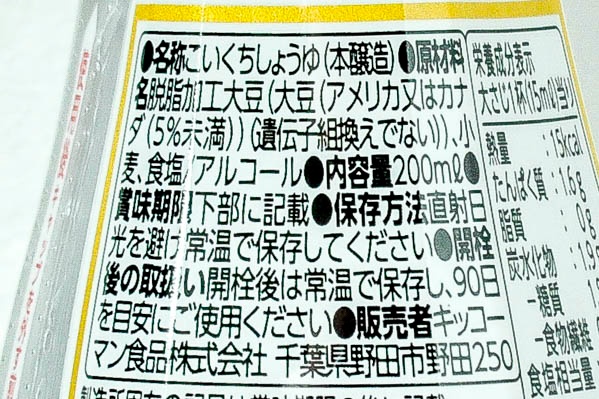 ●名称こいくちしょうゆ(本醸造)●原材料
名脱脂加工大豆(大豆(アメリカ又はカナ
ダ(5%未満))(遺伝子組換えでない))、小
麦、食塩/アルコール●内容量200mℓ●
賞味期限下部に記載●保存方法直射日
光を避け常温で保存してください●開栓
後の取扱い開栓後は常温で保存し、90日
を目安にご使用ください●販売者キッコー
マン食品株式会社 千葉県野田市野田250
栄養成分表示
大さじ1杯(15mℓ)当り
熱量 :15kcal
たんぱく質:1.6g
脂質 :0g
炭水化物 :1.9
-糖質
-食物繊維
食塩相当量